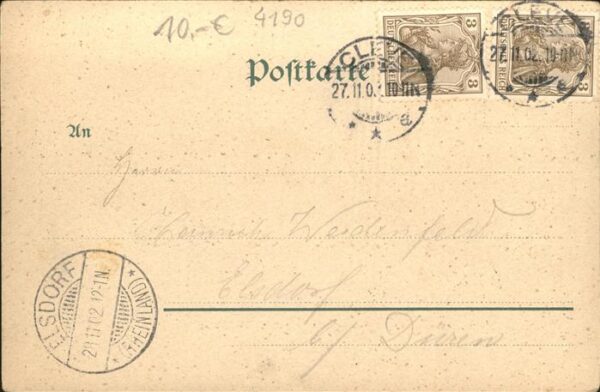 10.-€ 4190
Postkarte
3 3
CLEVE
27.11.02. 10-11N
a
CLEVE
27.11.02. 10-11N
An
Herrn
Heinrich Weidenfeld
Elsdorf
b/ Düren
ELSDORF
(RHEINLAND)
12-1N.